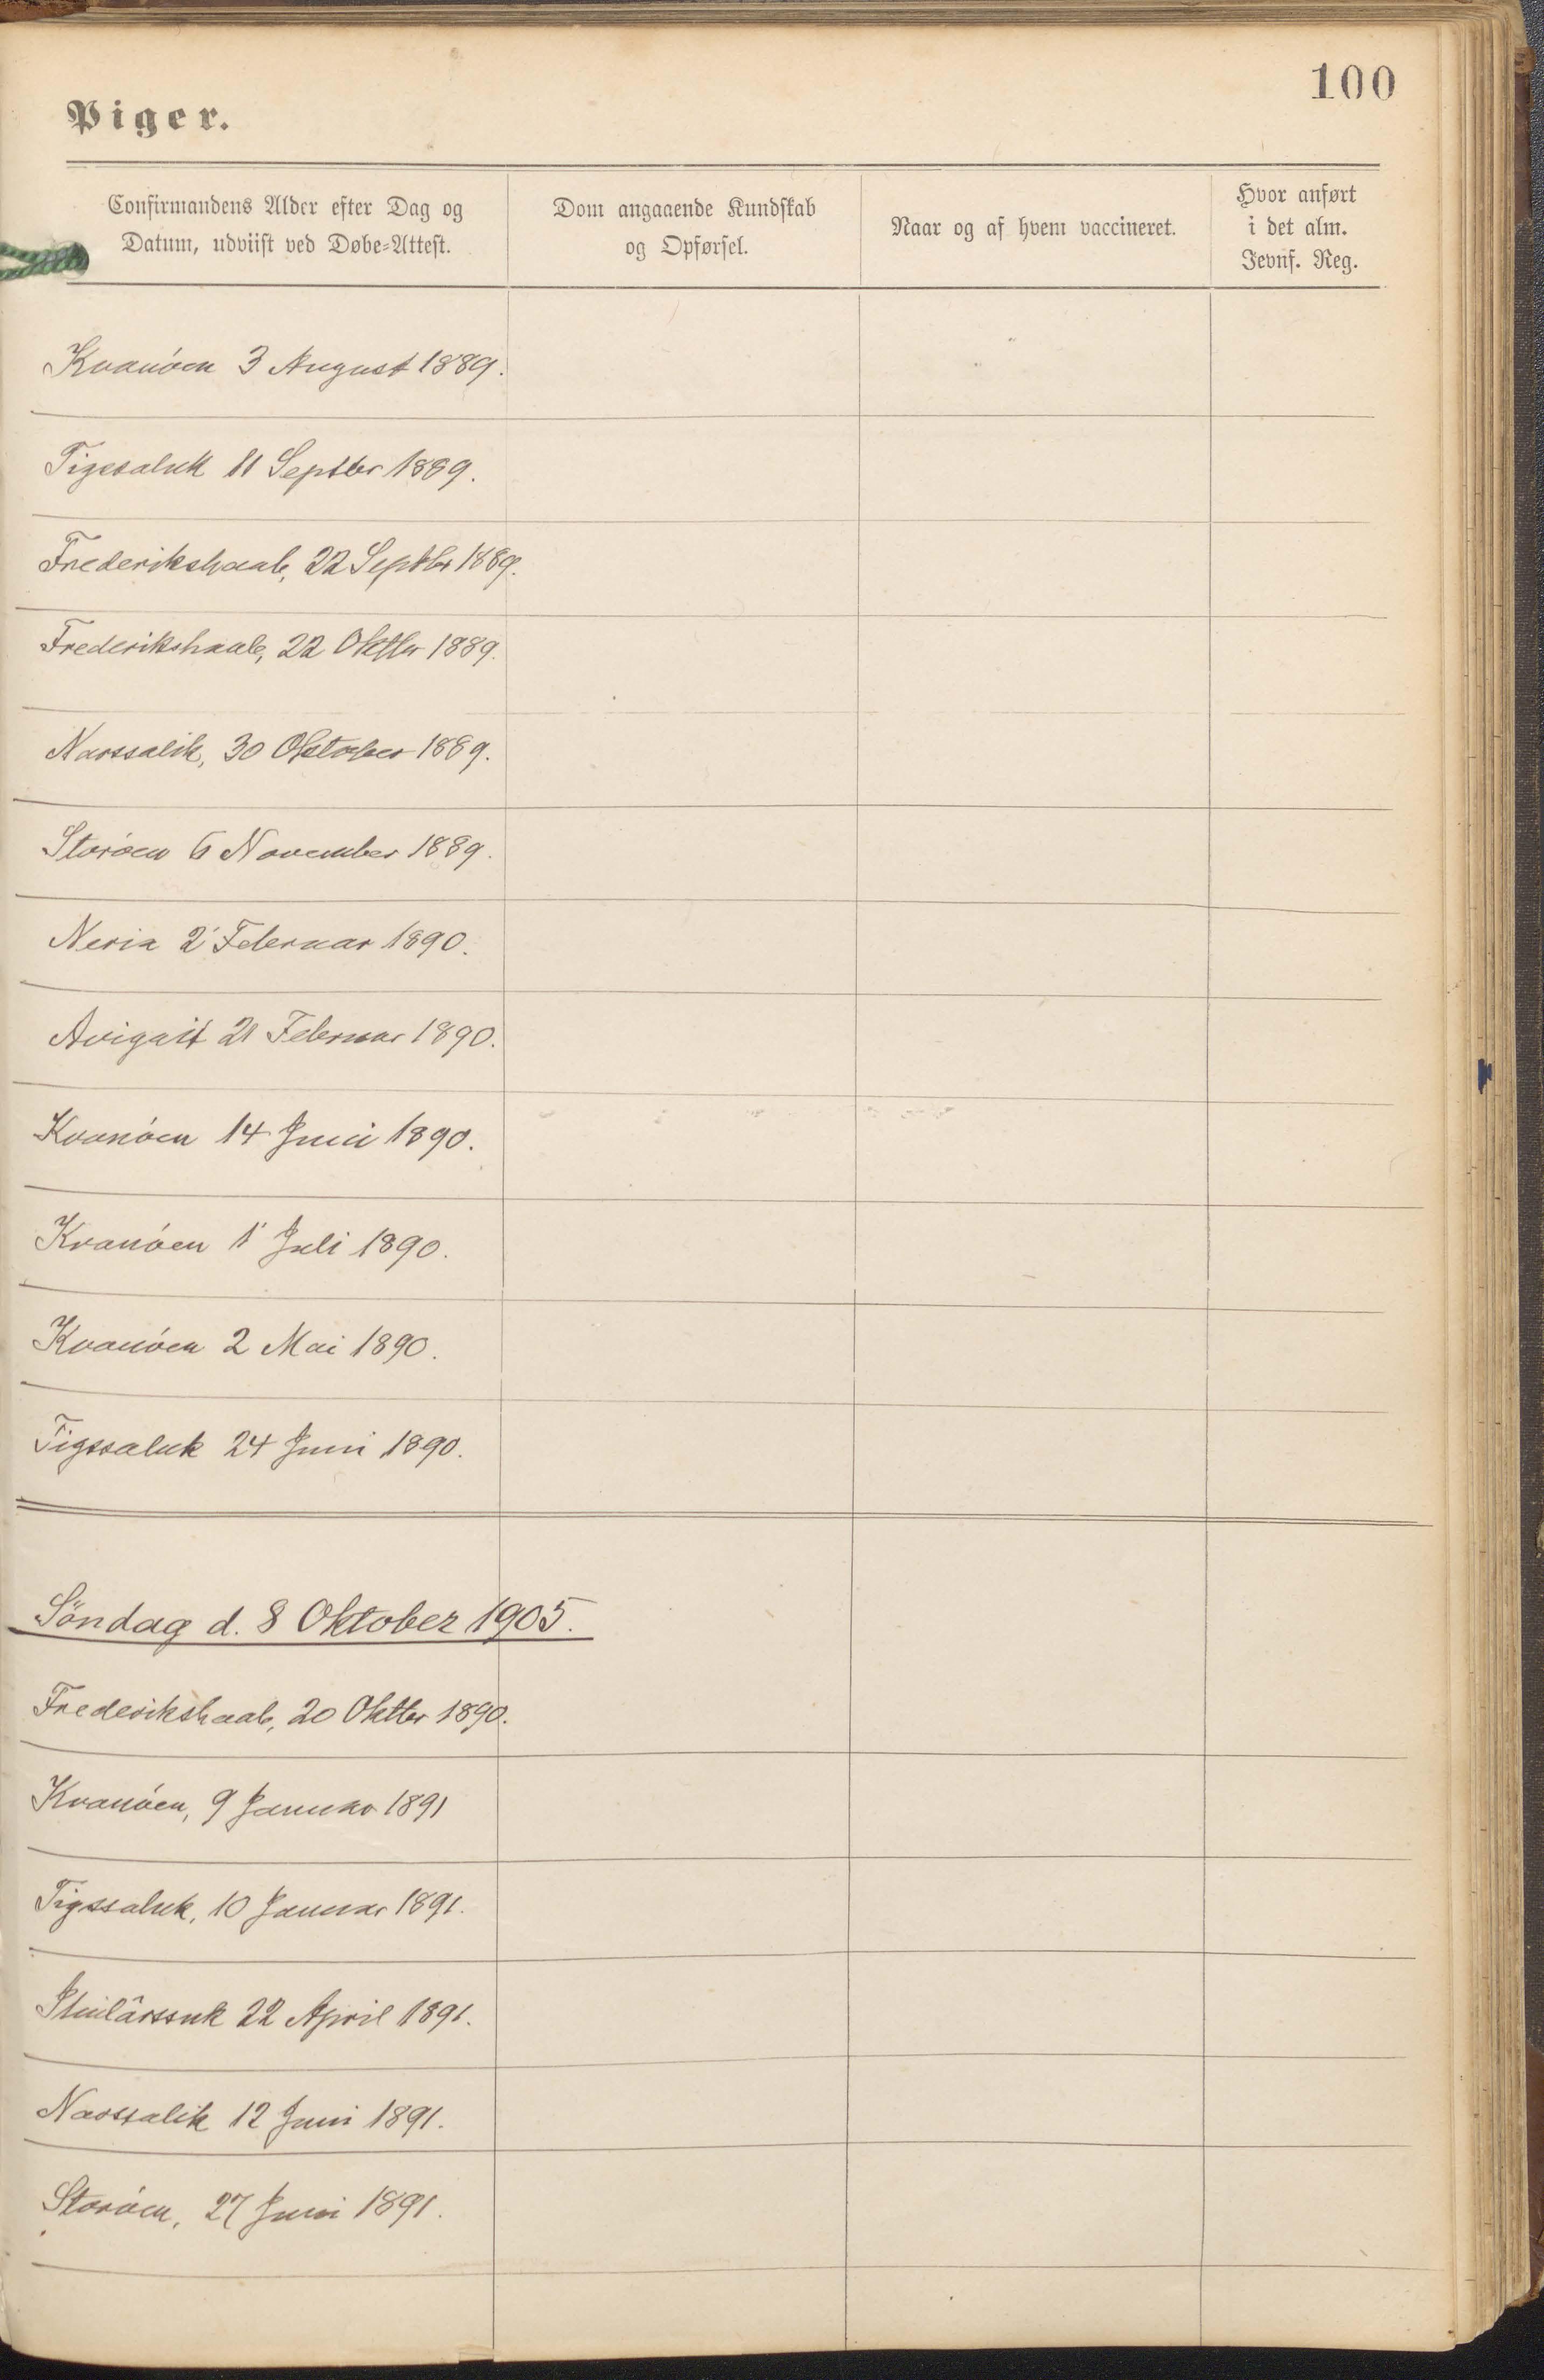 100
Piger.
Confirmandens Alder efter Dag og
Datum, udviist ved Døbe=Attest.
Dom angaaende Kundskab
og Opførsel.
Naar og af hvem vaccineret.
Hvor anført
i det alm.
Jevnf. Reg.
Kvanöen 3 August 1889.
Tigssaluk 11 Septbr 1889.
Frederikshaab, 22 Septbr 1889.
Frederikshaab, 22 Oktbr 1889.
Narssalik, 30 Oktober 1889.
Storöen 6 November 1889.
Neria 2' Februar 1890.
Avigait 21 Februar 1890.
Kvanöen 14 Juni 1890.
Kvanöen 1' Juli 1890.
Kvanöen 2 Mai 1890.
Tigssaluk 24 Juni 1890.
Söndag d. 8 Oktober 1905.
Frederikshaab, 20 Oktbr 1890.
Kvanöen, 9 Januar 1891
Tigssaluk, 10 Januar 1891.
22 April 1891.
Narssalik 12 Juni 1891.
Storöen, 27 Juni 1891.